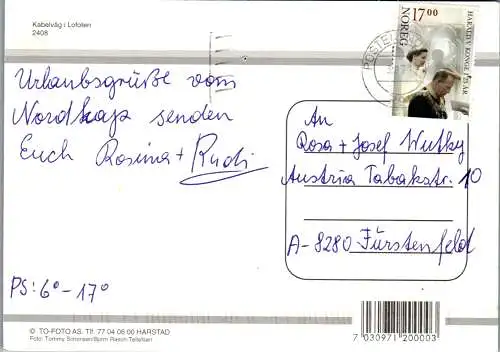 Kabelvåg i Lofoten
2408
Urlaubsgrüße vom
Nordkap senden
Euch Rosina + Rudi
PS: 6° - 17°
POSTEN
17 00
NOREG
HARALD V KONGE 75 ÅR
An
Rosa + Josef Wutky
Austria Tabakstr. 10
A-8280 Fürstenfeld
© TO-FOTO AS. Tlf. 77 04 06 00 HARSTAD
Foto: Tommy Simonsen/Bjørn Rasch-Tellefsen
7 030971 200003